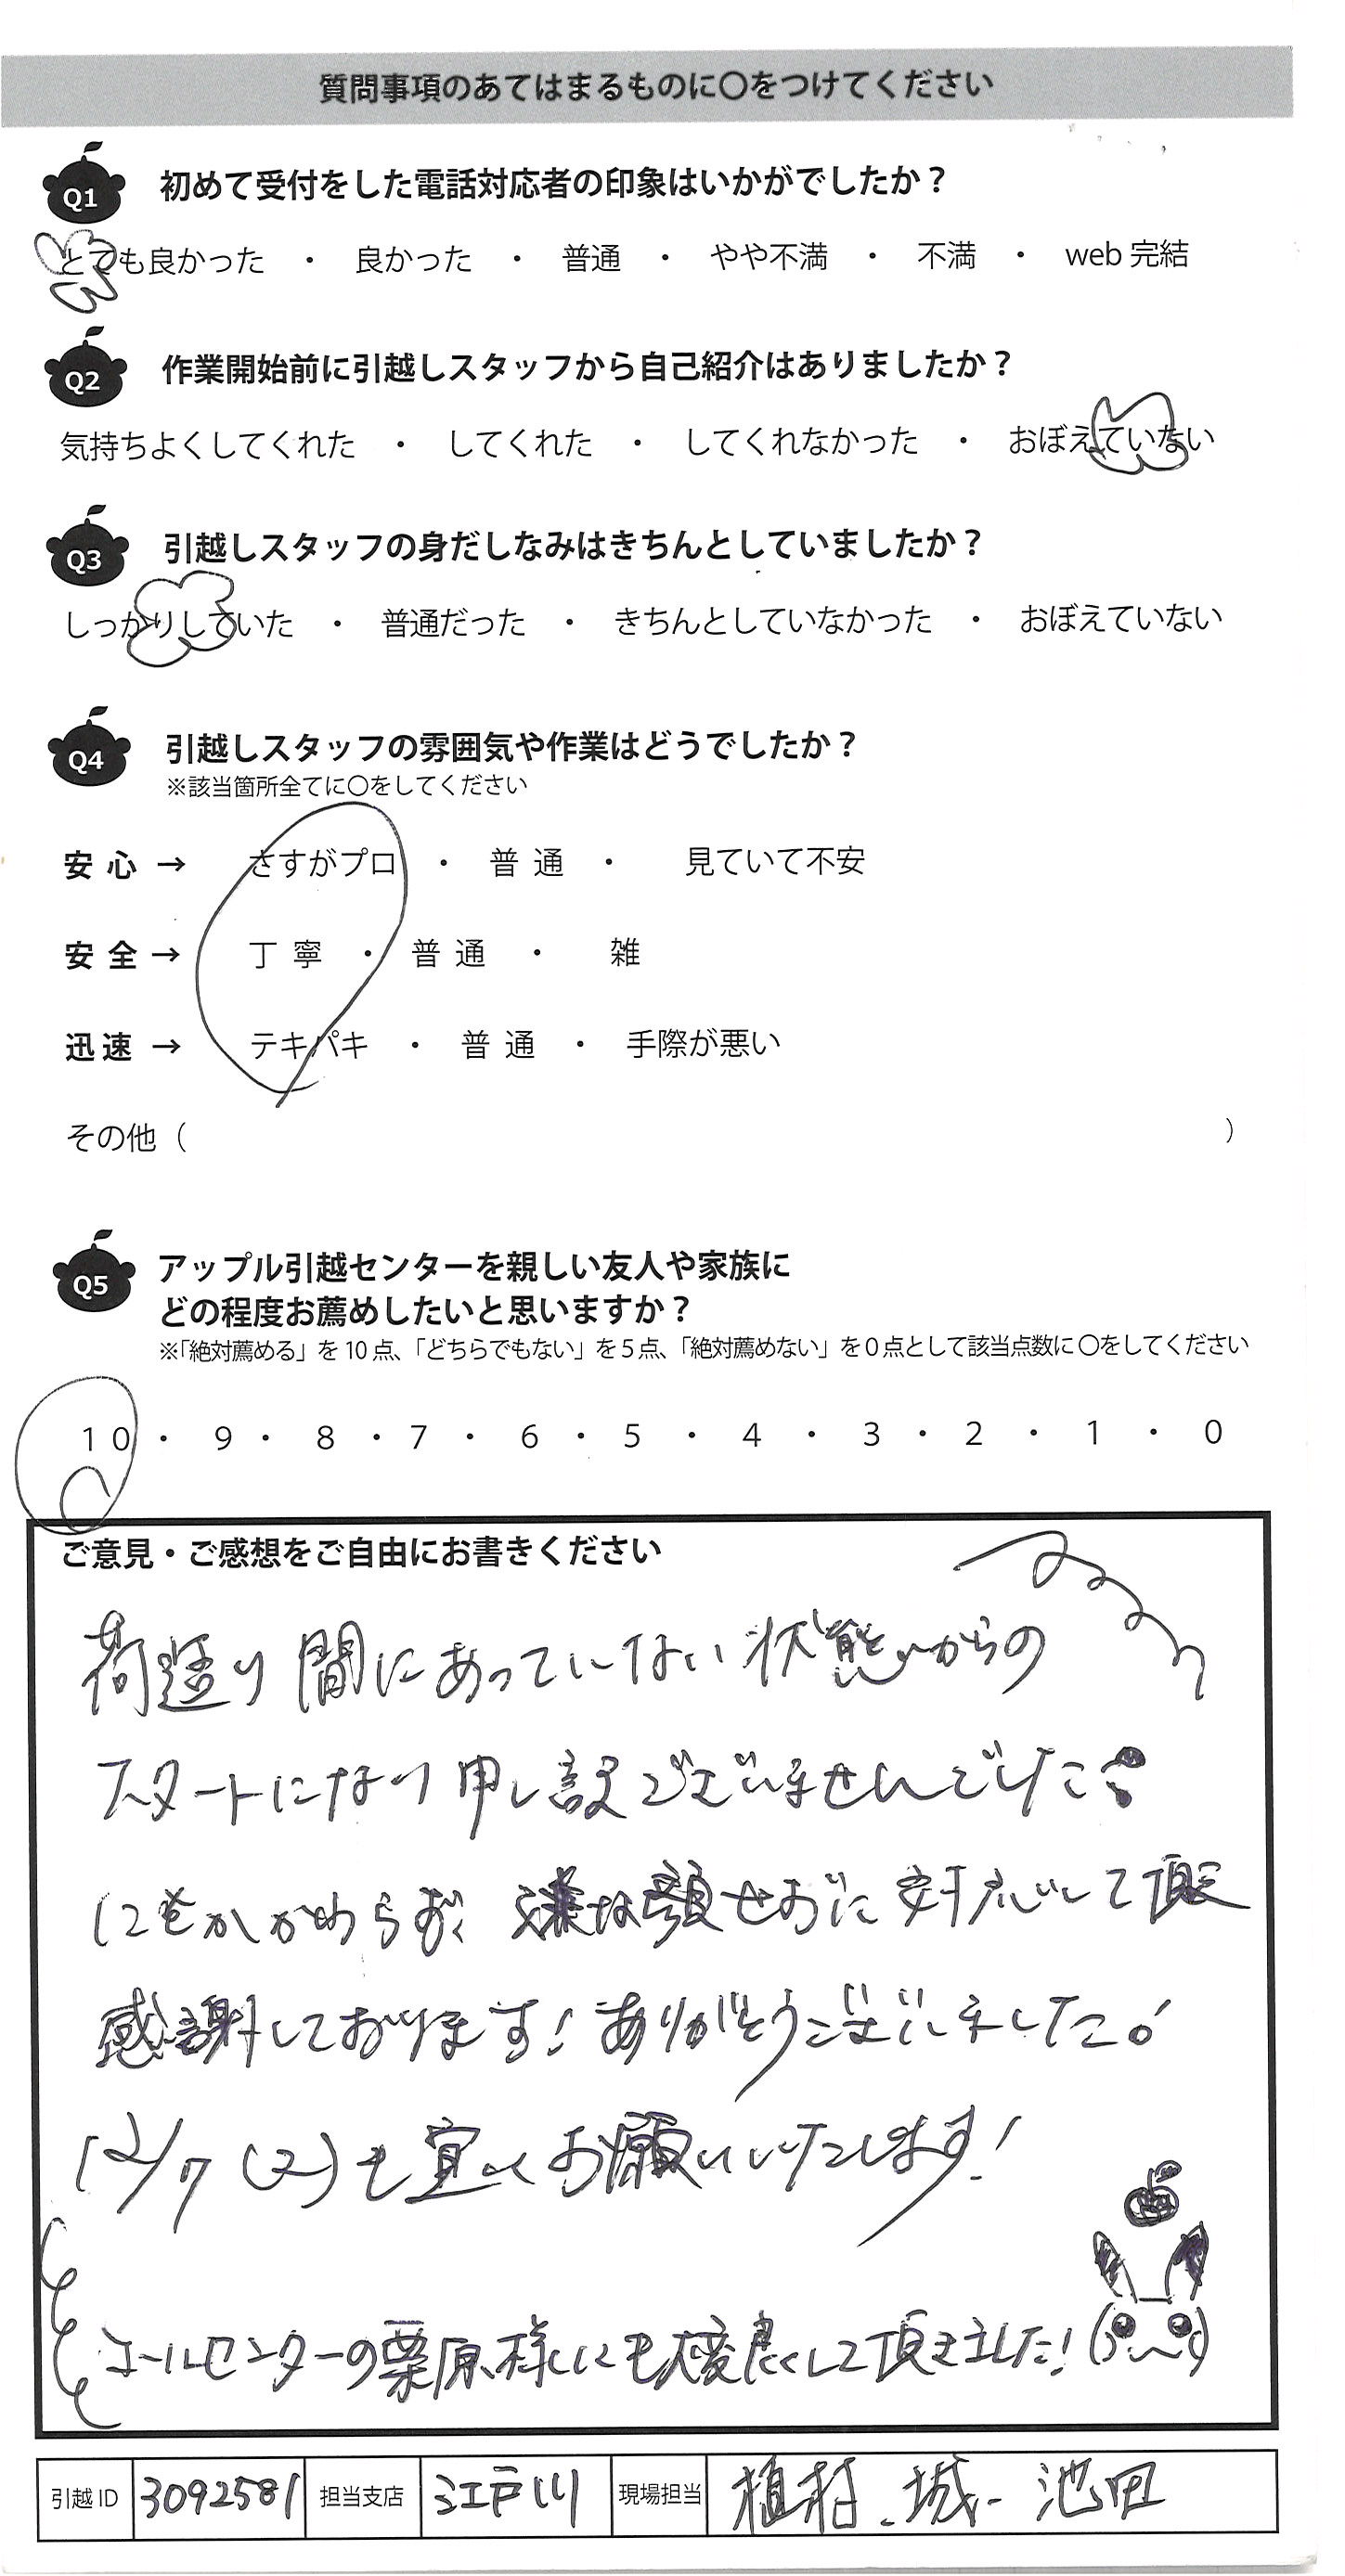 質問事項のあてはまるものに〇をつけてください
Q1 初めて受付をした電話対応者の印象はいかがでしたか？
とても良かった ・ 良かった ・ 普通 ・ やや不満 ・ 不満 ・ web 完結
Q2 作業開始前に引越しスタッフから自己紹介はありましたか？
気持ちよくしてくれた ・ してくれた ・ してくれなかった ・ おぼえていない
Q3 引越しスタッフの身だしなみはきちんとしていましたか？
しっかりしていた ・ 普通だった ・ きちんとしていなかった ・ おぼえていない
Q4 引越しスタッフの雰囲気や作業はどうでしたか？
※該当箇所全てに〇をしてください
安心 → さすがプロ ・ 普通 ・ 見ていて不安
安全 → 丁寧 ・ 普通 ・ 雑
迅速 → テキパキ ・ 普通 ・ 手際が悪い
その他（ ）
Q5 アップル引越センターを親しい友人や家族に
どの程度お薦めしたいと思いますか？
※「絶対薦める」を 10 点、「どちらでもない」を 5 点、「絶対薦めない」を 0 点として該当点数に〇をしてください
10 ・ 9 ・ 8 ・ 7 ・ 6 ・ 5 ・ 4 ・ 3 ・ 2 ・ 1 ・ 0
ご意見・ご感想をご自由にお書きください
荷造り間にあっていない状態からの
スタートになり申し訳ございませんでした
にもかかわらず、嫌な顔せずに対応して頂き
感謝しております！ありがとうございました！
12/7 (2)も宜しくお願いいたします！
コールセンターの栗原様にも大変良くして頂きました！
引越 ID 3092581 担当支店 江戸川 現場担当 植村、城、池田